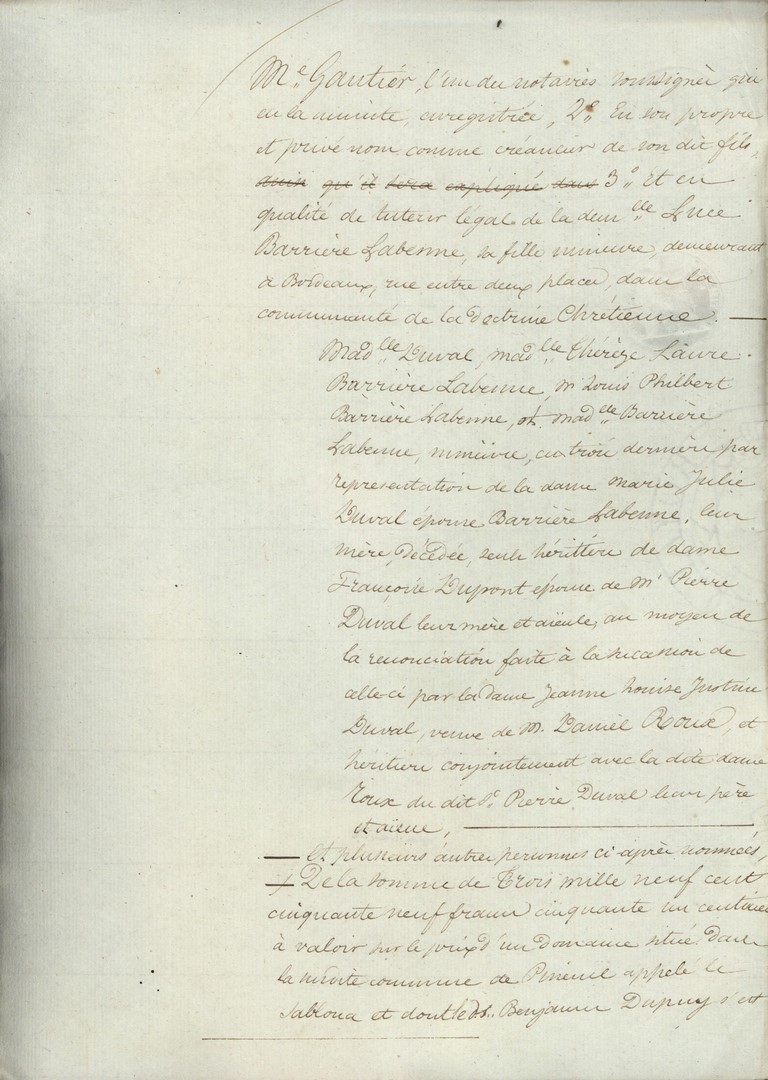 Me. Gautier, l'un des notaires soussignés qui
en la minute, enregistrée, 2o. En son propre
et privé nom comme créancier de son dit fils,
ainsi qu'il sera expliqué dans 3o. Et en
qualité de tuteur légal de la demlle Luce
Barrière Labenne, sa fille mineure, demeurant
à Bordeaux, rue entre deux places, dans la
communauté de la Doctrine Chrétienne. —
Madlle Duval, madlle Thérèze Laure
Barrière Labenne, Mr Louis Philbert
Barrière Labenne, et madlle Barrière
Labenne, mineure, ces trois derniers par
représentation de la dame Marie Julie
Duval épouse Barrière Labenne, leur
mère, décédée, seuls héritiers de dame
Françoise Dupont épouse de Mr Pierre
Duval leur mère et aïeule, au moyen de
la renonciation faite à la succession de
celle-ci par la dame Jeanne Louise Justine
Duval, veuve de M. Daniel Roux, et
héritiers conjointement avec la dite dame
Roux du dit Sr. Pierre Duval leur père
et aïeul, —
— et plusieurs autres personnes ci-après nommées,
De la somme de Trois mille neuf cent
cinquante neuf francs cinquante un centimes
à valoir sur le prix d'un Domaine situé dans
la susdite commune de Pineuil appelé le
et dont le dt. Benjamin Dupuy s'est